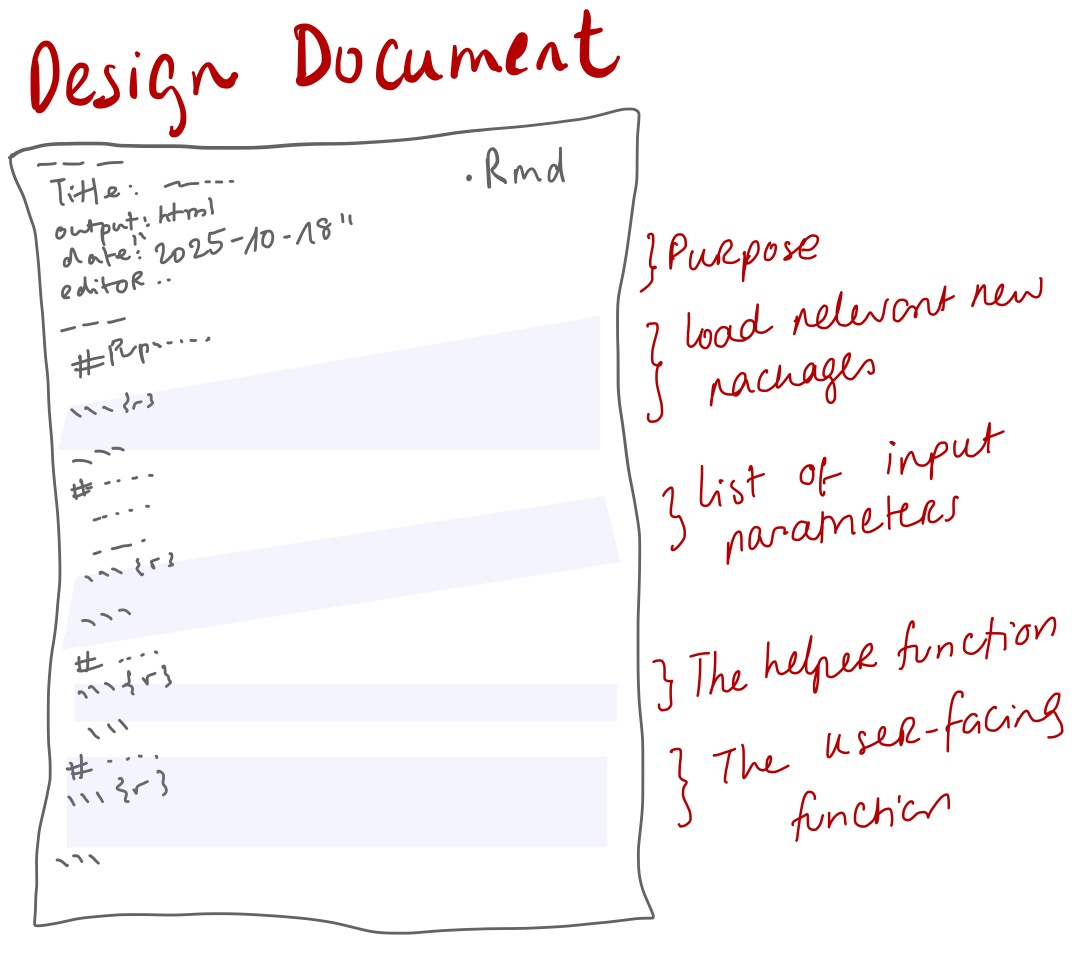 Design Document
---
.Rmd
Title: ~----
output: html
date: "2025-10-18"
editor..
---
#Purp-----
```{r}
```
# ....
-....
---.
```{r}
```
# ....
```{r}
```
# ....
```{r}
```
} Purpose
} load relevant new
packages
} list of input
parameters
} The helper function
} The user-facing
function